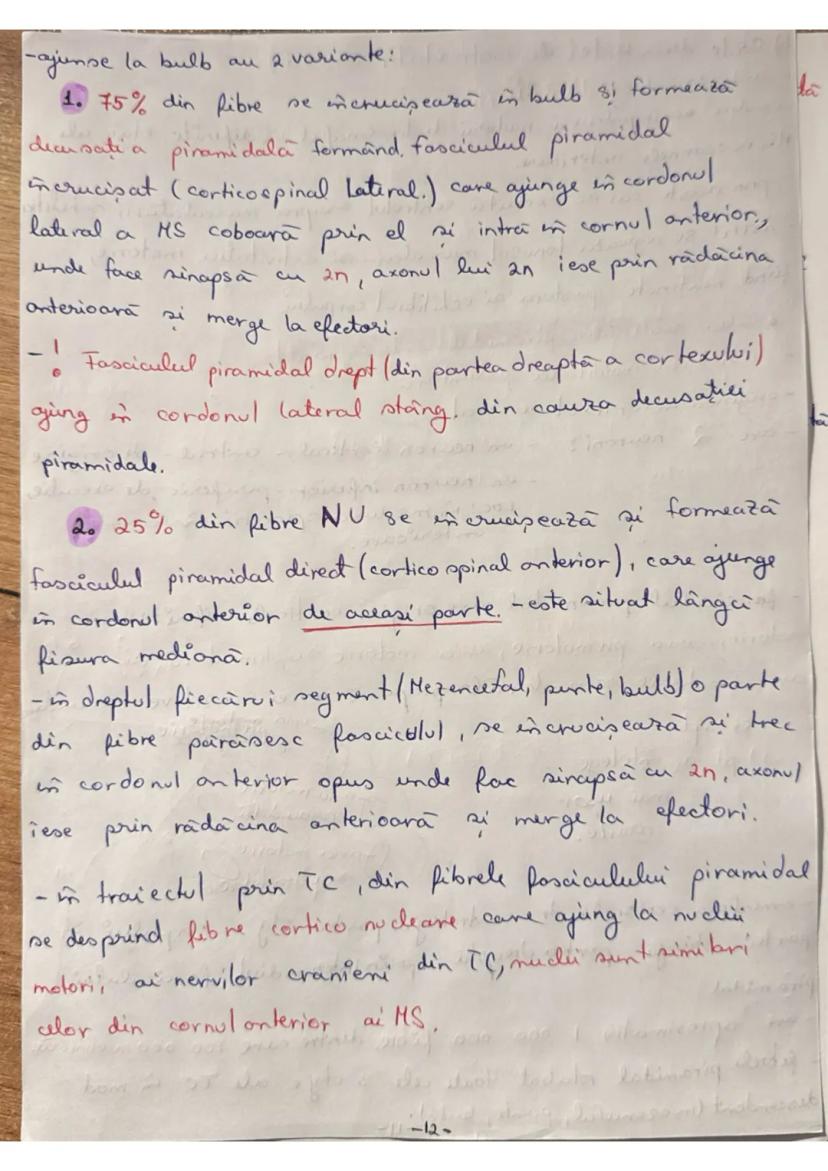 -ajunse la bulb au 2 variante:
1. 75% din fibre se încrucișează în bulb și formează
decusația piramidală formând, fasciculul piramidal
încrucișat (corticospinal lateral.) care ajunge în cordonul
lateral a MS coboară prin el și intră în cornul anterior,,
unde face sinapsă cu 2n, axonul lui 2n iese prin rădăcina
anterioară și merge la efectori.
-! Fasciculul piramidal drept (din partea dreaptă a cortexului)
ajung în cordonul lateral stâng. din cauza decusației
piramidale.
2. 25% din fibre NU se încrucișează și formează
fasciculul piramidal direct (cortico spinal anterior), care ajunge
în cordonul anterior de aceași parte. -este situat lângă
fisura mediană.
-în dreptul fiecărui segment (Mezencefal, punte, bulb) o parte
din fibre părăsesc fasciculul, se încrucișează și trec
în cordonul anterior opus unde fac sinapsă cu 2n, axonul
iese prin rădăcina anterioară și merge la efectori.
-în traiectul prin TC, din fibrele fasciculului piramidal
se desprind fibre cortico nucleare care ajung la nuclii
motorii, ai nervilor cranieni din TC, nuclii sunt similari
celor din cornul anterior ai MS.
-12-